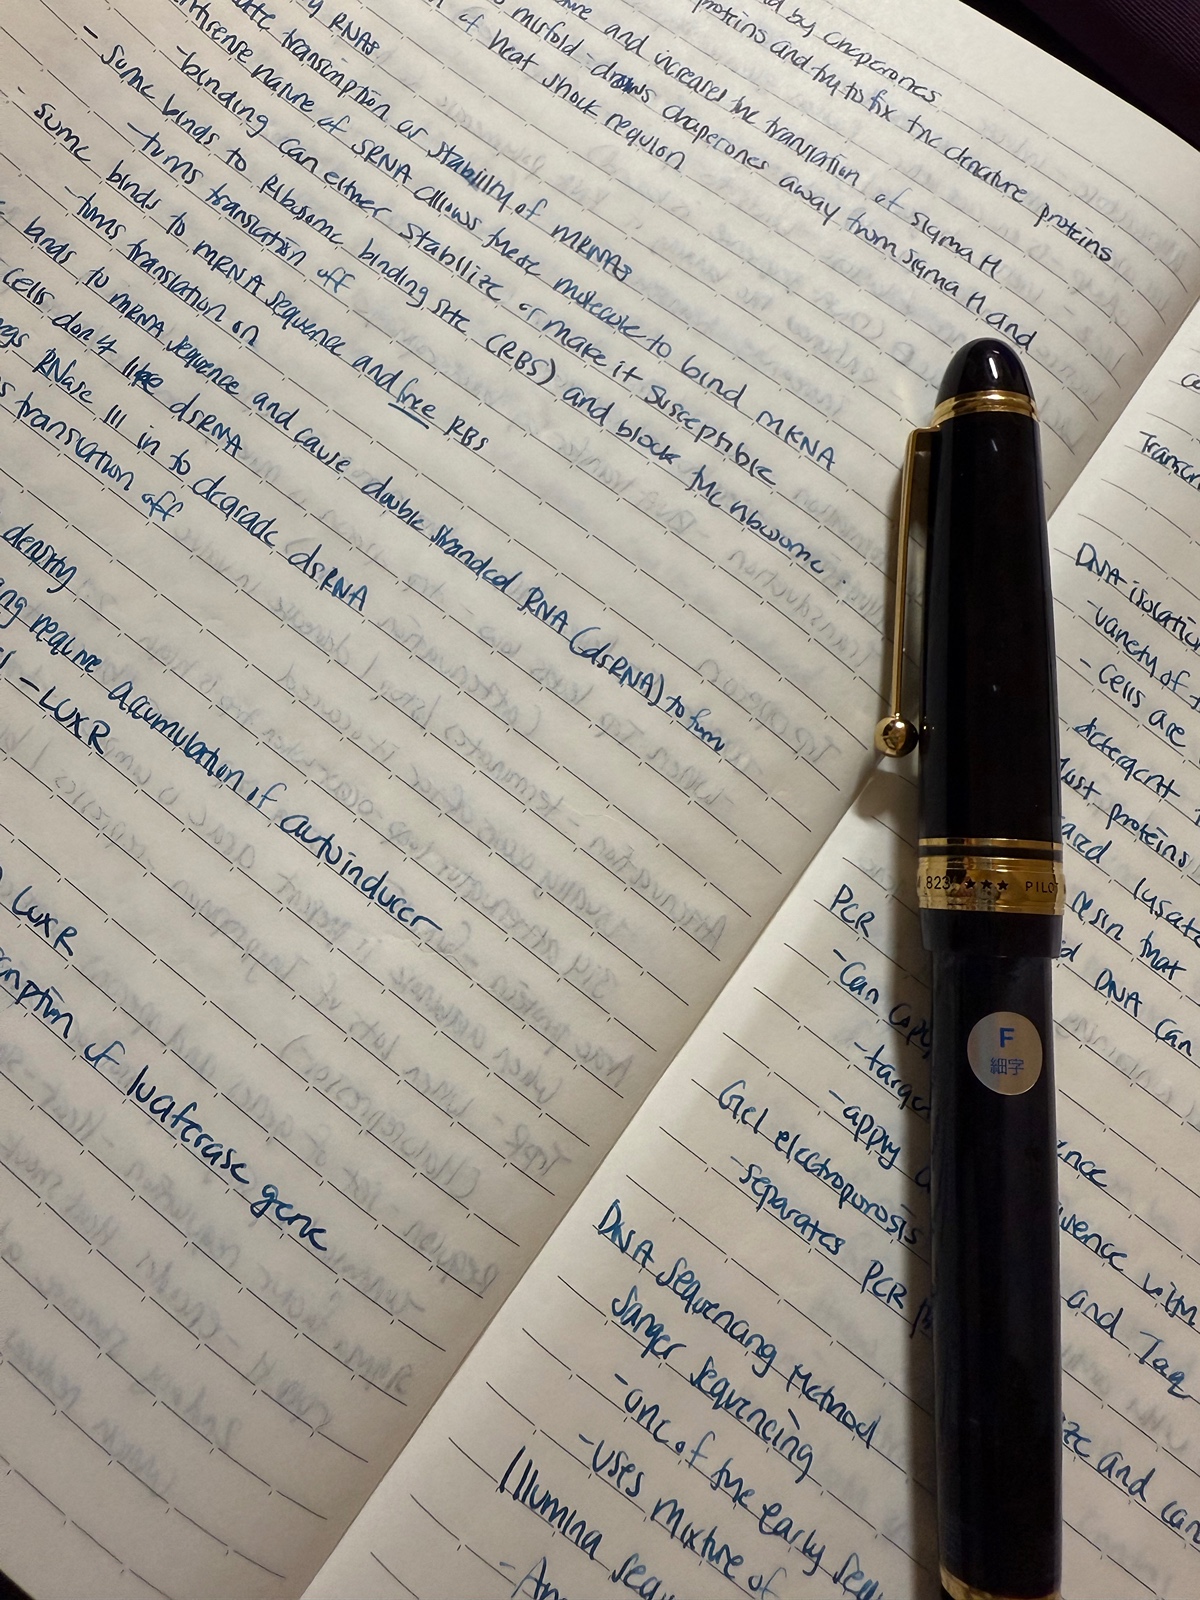 d by chaperones
proteins and try to fix the denature proteins
and increases the translation of sigma H
to misfold - draws chaperones away from sigma H and
of heat shock regulon
y RNAs
transcription or stability of mRNAs
antisense nature of sRNA allows these molecule to bind mRNA
-binding can either stabilize or make it susceptible
- Some binds to Ribosome binding site (RBS) and block the ribosome.
-turns translation off
Some binds to mRNA sequence and free RBS
-turns translation on
binds to mRNA sequence and cause double stranded RNA (dsRNA) to form
Cells don't like dsRNA
RNase III in to degrade dsRNA
translation off
density
require accumulation of autoinducer
- LUXR
LuxR
of luciferase gene
Transcri
DNA isolation
-variety of
- Cells are
detergent
proteins
lysate
resin that
DNA can
PCR
-Can copy
-target
-apply
and Taq
Gel electroporosis
-separates PCR
and can
DNA Sequencing Method
Sanger sequencing
-one of the early
-Uses mixture of
Illumina
823 ★★★ PILOT
F
細字